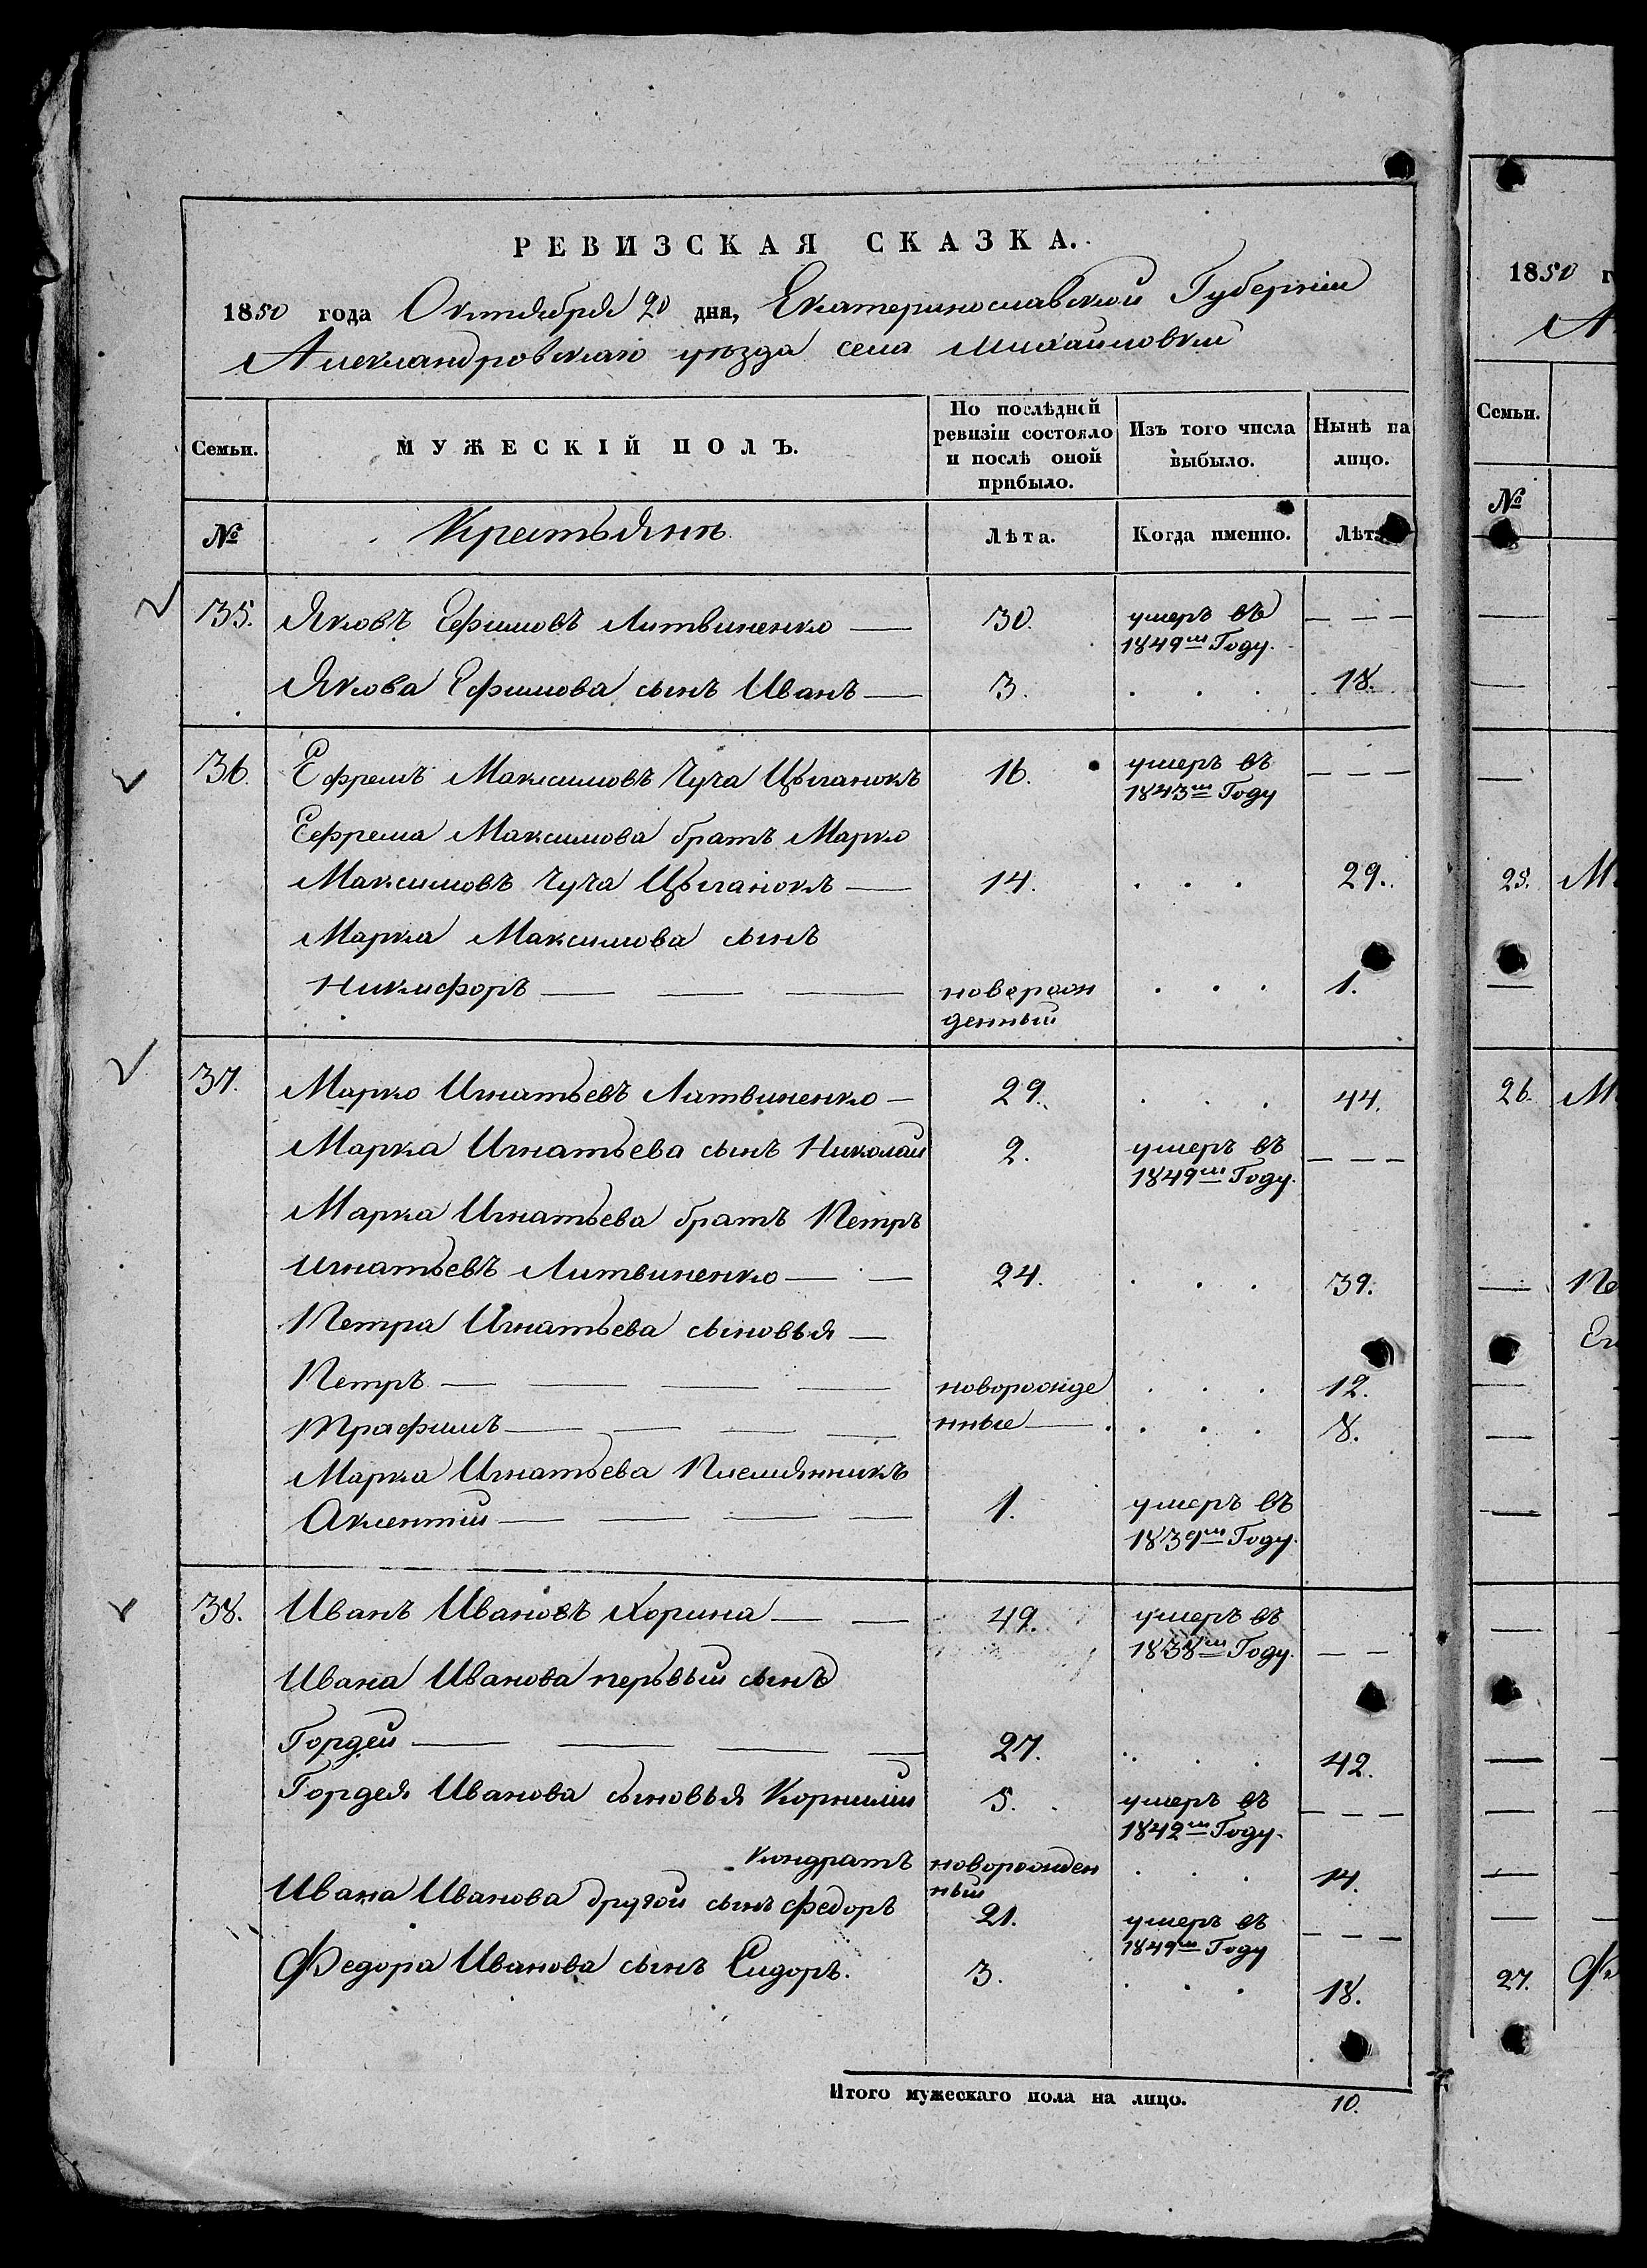 РЕВИЗСКАЯ СКАЗКА.
1850 года Октября 20 дня, Екатеринославской Губернiи
Александровскаго уѣзда села Михайловки
Семьи.
МУЖЕСКІЙ ПОЛЪ.
По послѣдней ревизіи состояло и послѣ оной прибыло.
Изъ того числа выбыло.
Нынѣ на лицо.
№ Крестьянъ Лѣта. Когда именно. Лѣта
35. Яковъ Ефимовъ Литвиненко — 30. умеръ въ 1849м Году. — — —
Якова Ефимова сынъ Иванъ — 3. . . . 18.
36. Ефремъ Максимовъ Чуча Цыганокъ 16. умеръ въ 1843м Году — — —
Ефрема Максимова братъ Марко
Максимовъ Чуча Цыганокъ — 14. . . . 29.
Марка Максимова сынъ
Никифоръ — — — новорож денный . . . 1.
37. Марко Игнатьевъ Литвиненко — 29. . . . 44.
Марка Игнатьева сынъ Николай 2. умеръ въ 1849м Году. — — —
Марка Игнатьева братъ Петръ
Игнатьевъ Литвиненко — — 24. . . . 39.
Петра Игнатьева сыновья —
Петръ — — — — новорожде . . . 12.
Трафимъ — — — — нные — . . . 8.
Марка Игнатьева Племянникъ
Аксентий — — — — 1. умеръ въ 1839м Году.
38. Иванъ Ивановъ Хорина — — 49. умеръ въ 1838м Году. — —
Ивана Иванова перьвый сынъ
Гордей — — — — 27. . . . 42.
Гордея Иванова сыновья Корнилий 5. умеръ въ 1842м Году. — — —
Кондратъ новорожден ный . . . 14.
Ивана Иванова другой сынъ Федоръ 21. умеръ въ 1849м Году — — —
Федора Иванова сынъ Сидоръ. 3. . . . 18.
Итого мужескаго пола на лицо. 10.
1850 г
А
Семьи.
№
25. М
26. М
Пе
27. Фе